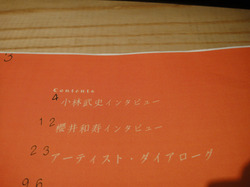 3
Contents
4 小林武史インタビュー
12 櫻井和寿インタビュー
23 アーティスト・ダイアローグ
96